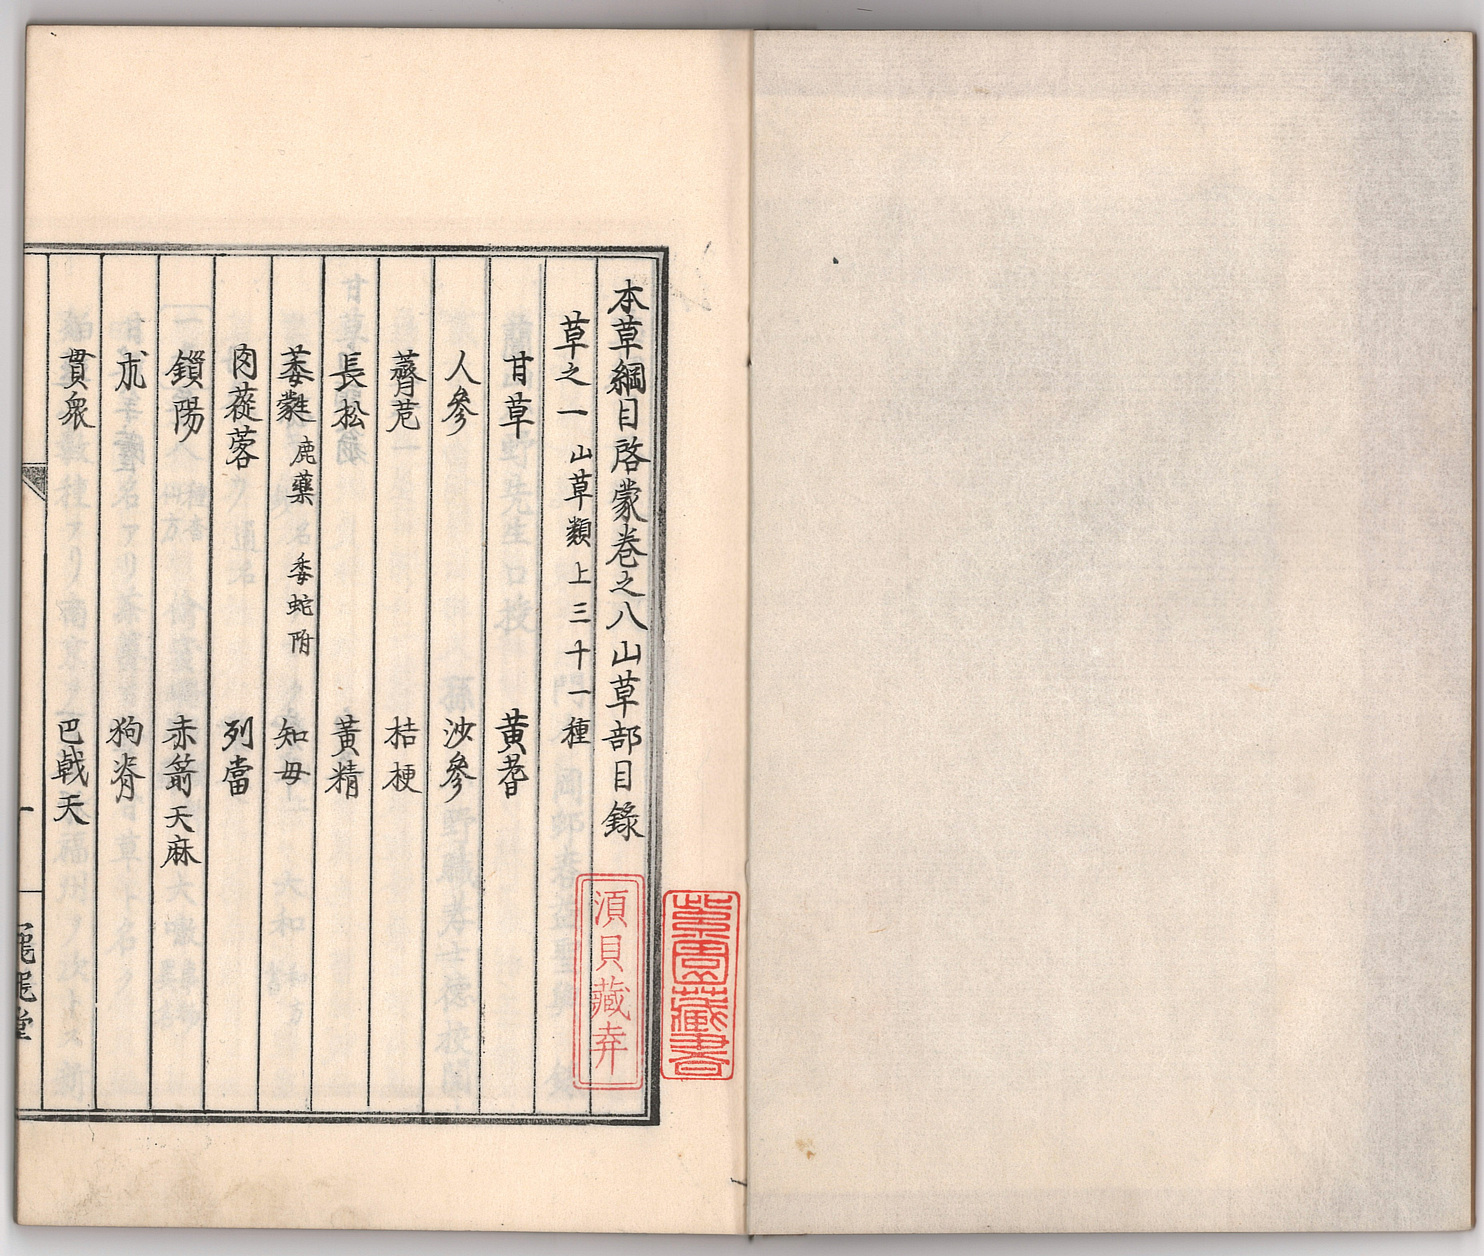 本草綱目啓蒙卷之八山草部目錄
草之一 山草類上三十一種
甘草 黄耆
人參 沙參
薺苨 桔梗
長松 黄精
萎蕤 鹿藥 委蛇附 知母
肉蓯蓉 列當
鎻陽 赤箭天麻
朮 狗脊
貫衆 巴戟天
一
須貝藏弆
藏書